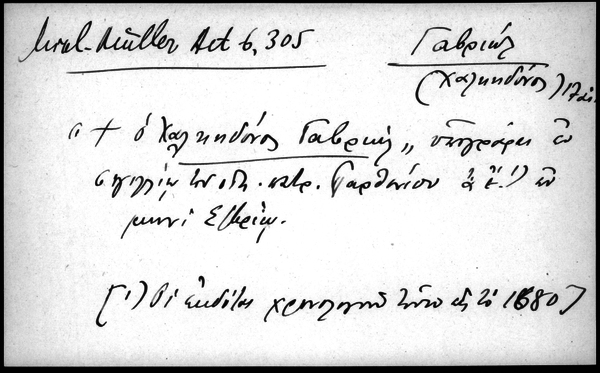 Mikl-Müller Act 6, 305
Γαβριήλ
(Χαλκηδόνος) 17 αἰ.
" + ὁ Χαλκηδόνος Γαβριήλ „ ὑπογράφει ἐν
σιγιλλίῳ τοῦ οἰκ. πατρ. Παρθενίου ἀ ἔ. 1) ἐν
μηνὶ Σ/βρίῳ.
[1) Οἱ ἐκδόται χρονολογοῦν τοῦτο εἰς τὸ 1680]